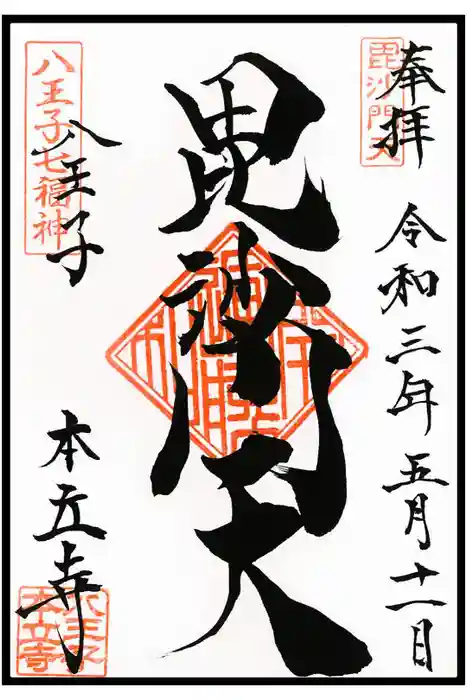 奉拝
令和三年五月十一日
毘沙門天
毘沙門天
八王子
本立寺
八王子七福神
八王子
本立寺